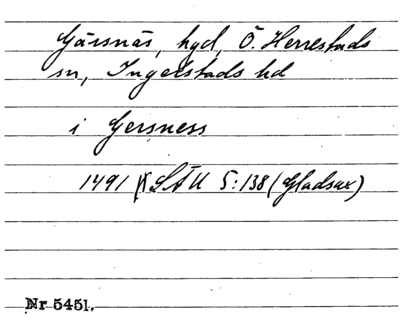 Gärsnäs, hgd, Ö. Herrestads
sn, Ingelstads hd
i Gersness
1491 LÄU 5:138 (Gladsax)
Nr 5451.